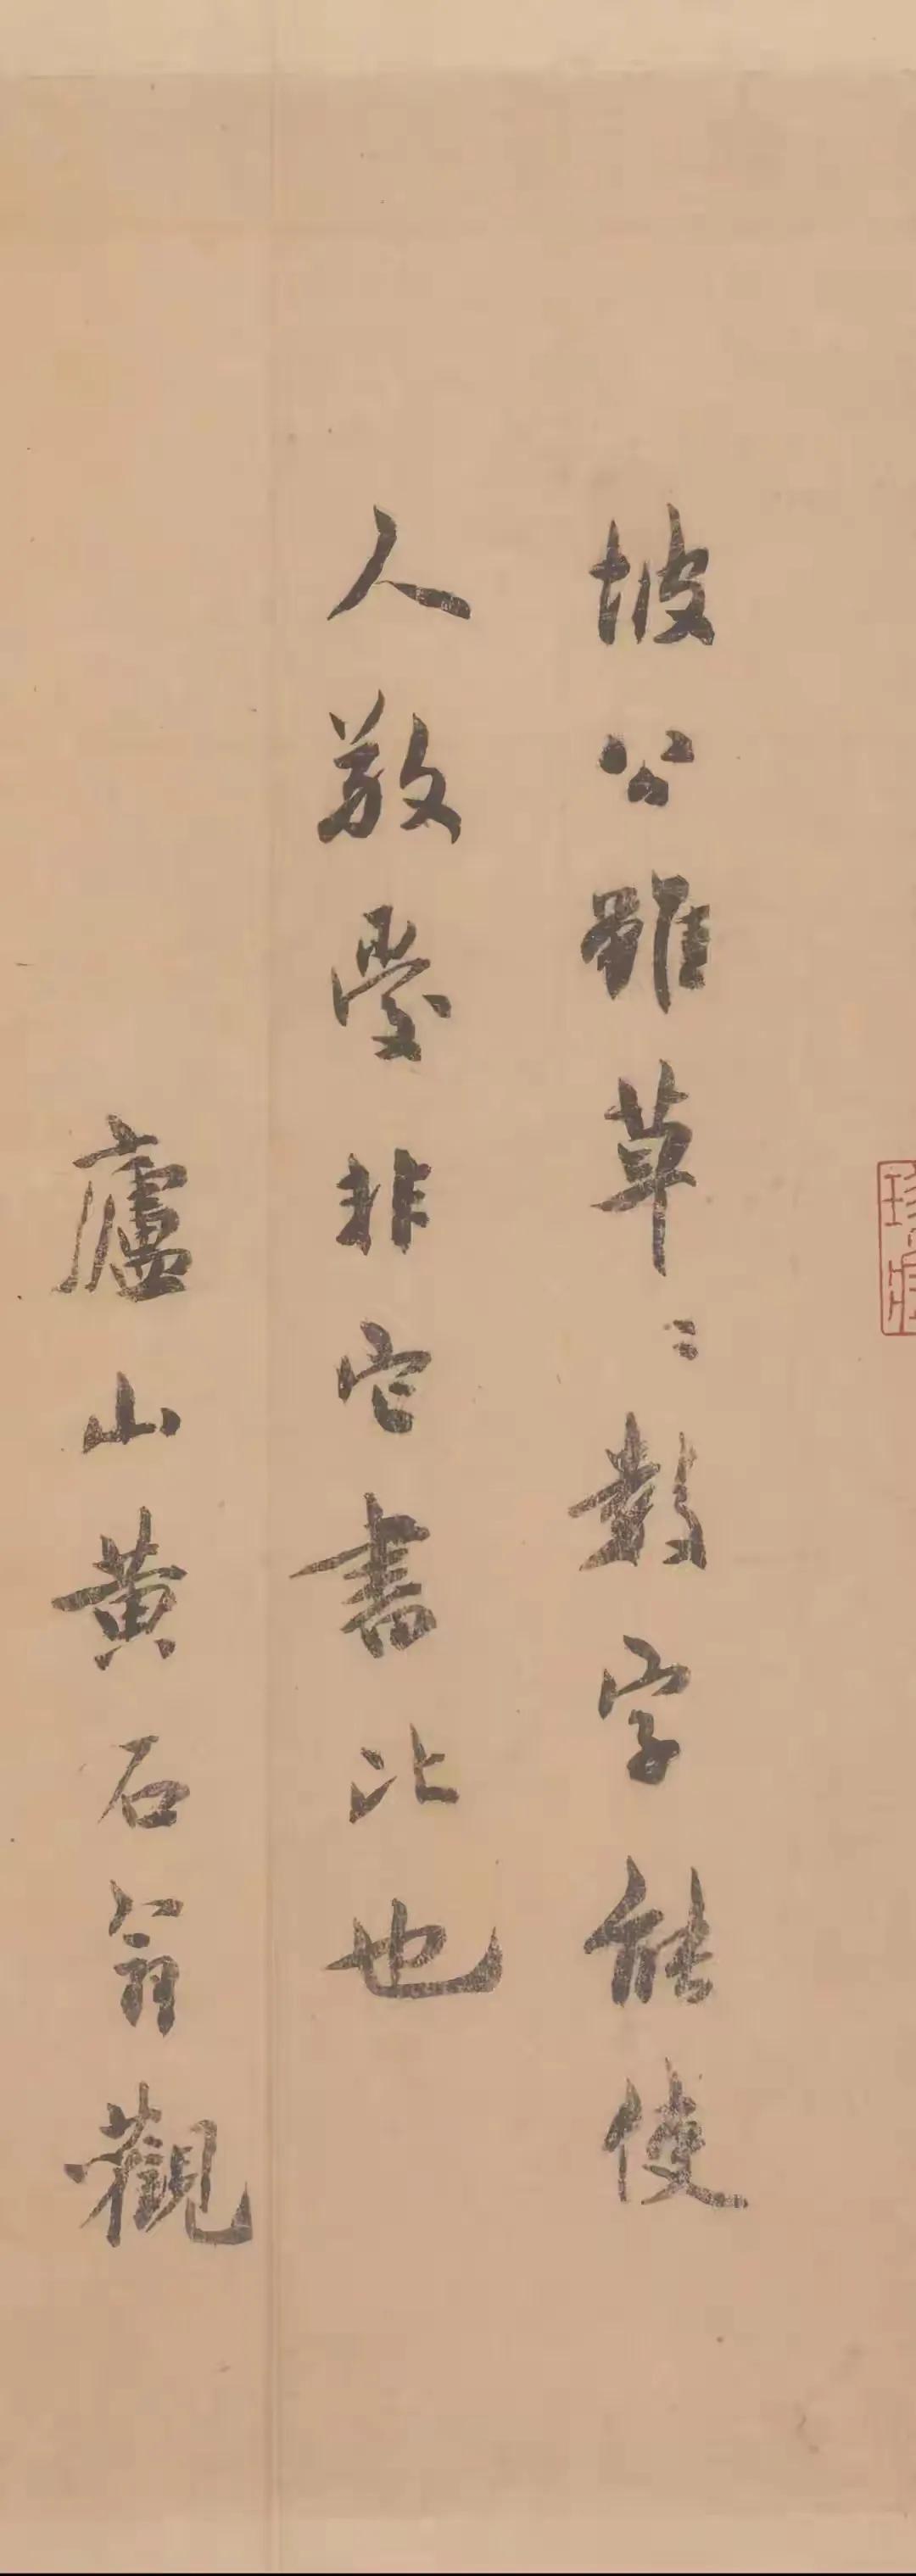 坡公雖草〻數字能使
人敬愛非它書比也
廬山黄石翁觀
珍